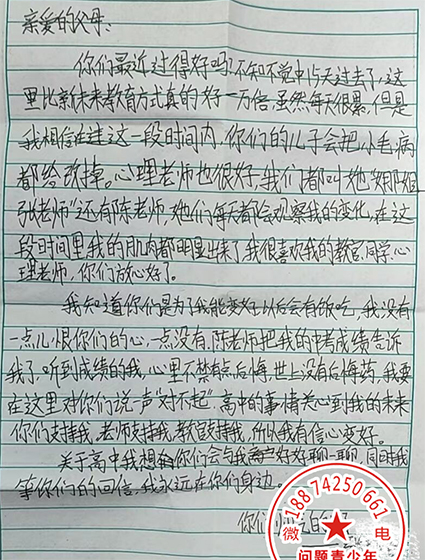 亲爱的父母、
你们最近过得好吗?不知不觉中5天过去了,这
里比亲未来教育方式真的好一万倍,虽然每天很累,但是
我相信在进这一段时间内,你们的儿子会把小毛病
都给改掉。心理老师也很好,我们都叫她
张老师"还有陈老师,她们每天都会观察我的变化,在这
段时间里我的肌肉都明显出来了我很喜欢我的教官,同学,心
理老师,你们放心好了。
我知道你们是为了我能变好以后会有饭吃,我没有
一点儿恨你们的心,一点没有,陈老师把我的中考成绩告诉
我了,听到成绩的我,心里不禁有点后悔,世上没有后悔药,我要
在这里对你们说一声"对不起"高中的事情关心到我的未来
你们支持我,老师支持我,教官支持我,所以我有信心变好。
关于高中我想你们会与我好好聊一聊,同时我
等你们的回信,我永远在你们身边。
你们
18874250661
微 电
问题青少年